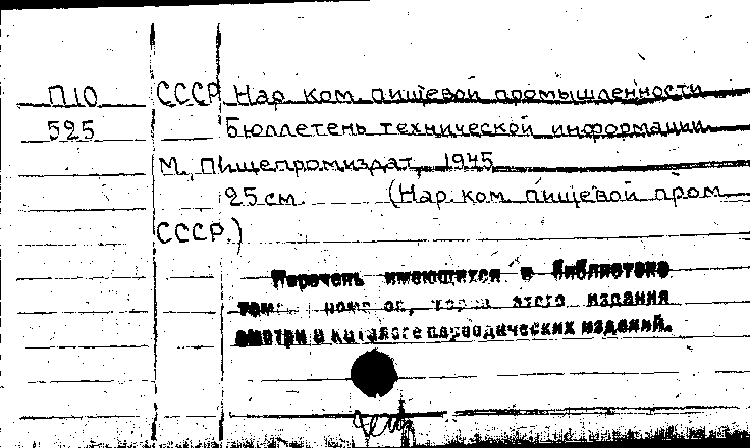 П10 СССР Нар. ком. пищевой промышленности
525 Бюллетень технической информации
М., Пищепромиздат, 1945
25 см. (Нар. ком. пищевой пром.
СССР.)
Перечень имеющихся в библиотеке
этого издания
смотри в каталоге периодических изданий.